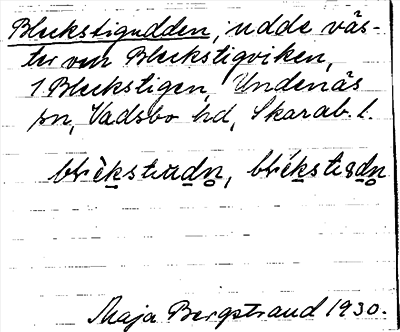 Bleckstigudden, udde väs-
ter om Bleckstigviken,
1 Bleckstigen, Undenäs
sn, Vadsbo hd, Skarab. l.
Maja Bergstrand 1930.